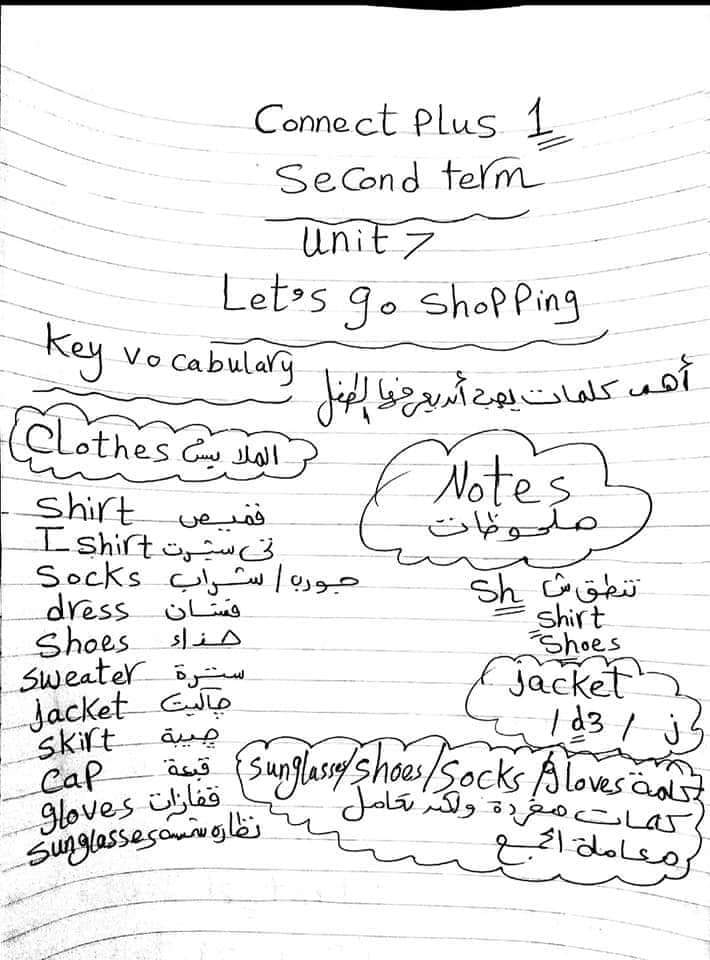 Connect Plus 1
Second term
Unit 7
Let's go shopping
Key vocabulary
أهم كلمات يجب أن يعرفها الطفل
Clothes الملابس
Shirt قميص
T shirt تى شيرت
Socks جورب / شراب
dress فستان
Shoes حذاء
Sweater سترة
jacket جاكيت
skirt جيبة
Cap قبعة
gloves قفازات
Sunglasses نظارة شمسية
Notes
ملحوظات
Sh تنطق ش
Shirt
Shoes
jacket
/ d3 / ز
كلمة Sunglasses/shoes/socks/gloves
كلمات مفردة ولكن تعامل
معاملة الجمع